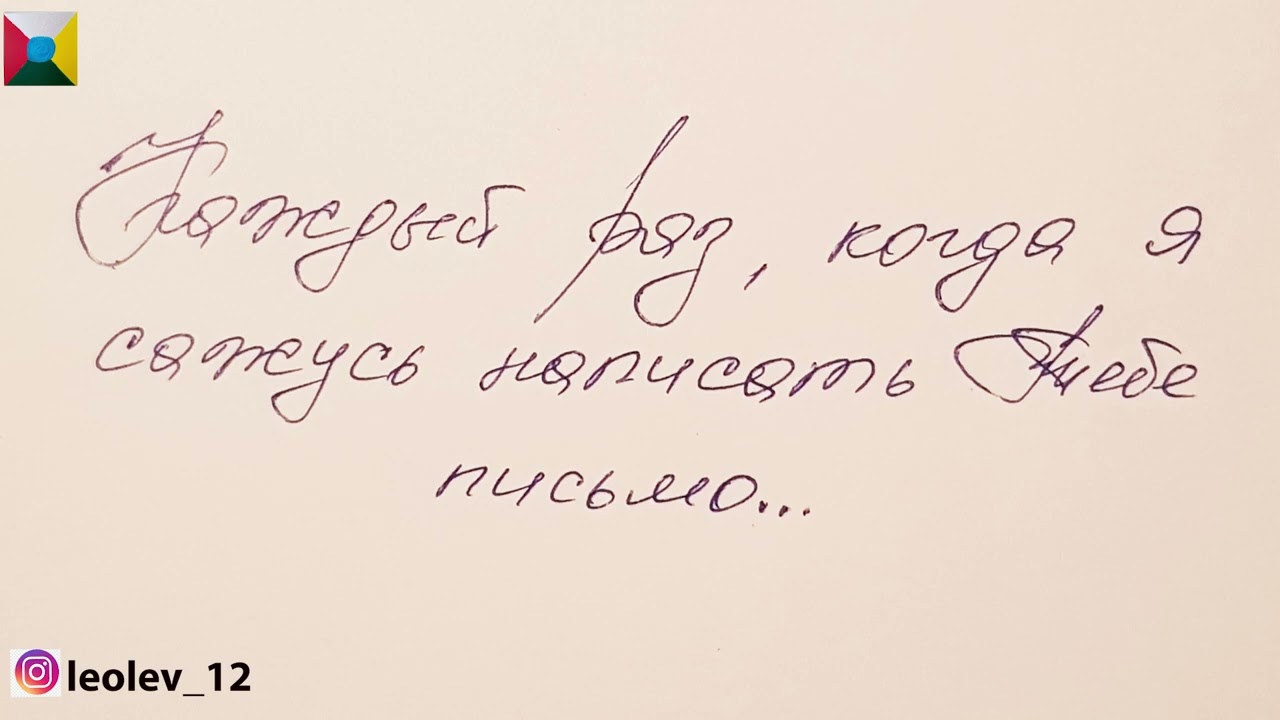 Каждый раз, когда я
сажусь написать Тебе
письмо...
leolev_12